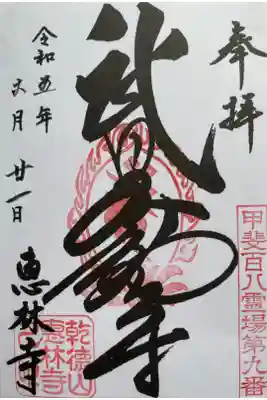 奉拝
甲斐百八霊場第九番
武
令和五年
六月廿一日
恵林寺
乾徳山
恵林寺